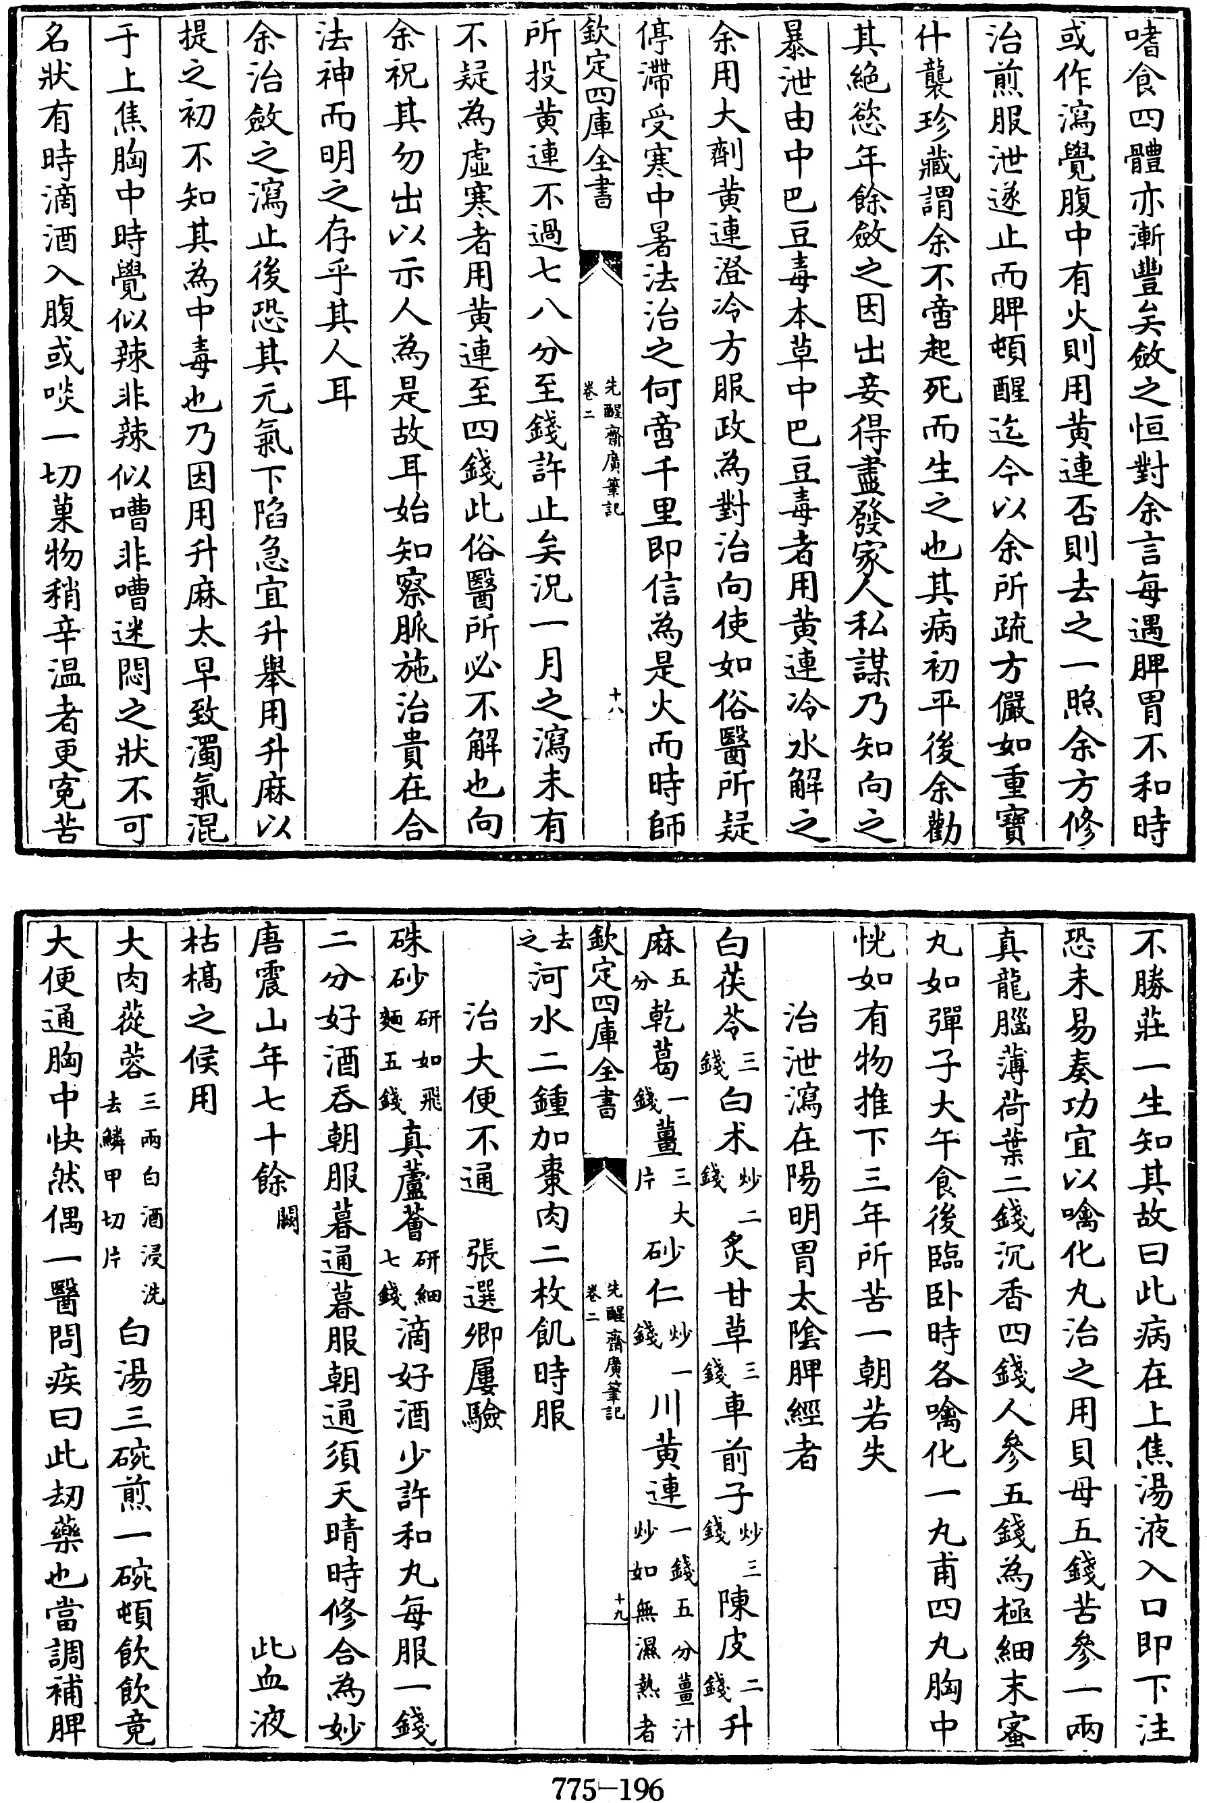 嗜食四體亦漸豐矣斂之恒對余言每遇脾胃不和時
或作瀉覺腹中有火則用黄連否則去之一照余方修
治煎服泄遂止而脾頓醒迄今以余所疏方儼如重寶
什襲珍藏謂余不啻起死而生之也其病初平後余勸
其絶慾年餘斂之因出妾得盡發家人私謀乃知向之
暴泄由中巴豆毒本草中巴豆毒者用黄連冷水解之
余用大劑黄連澄冷方服政為對治向使如俗醫所疑
停滯受寒中暑法治之何啻千里即信為是火而時師
欽定四庫全書
先醒齋廣筆記
卷二
十八
所投黄連不過七八分至錢許止矣況一月之瀉未有
不疑為虛寒者用黄連至四錢此俗醫所必不解也向
余祝其勿出以示人為是故耳始知察脈施治貴在合
法神而明之存乎其人耳
余治斂之瀉止後恐其元氣下陷急宜升舉用升麻以
提之初不知其為中毒也乃因用升麻太早致濁氣混
于上焦胸中時覺似辣非辣似嘈非嘈迷悶之狀不可
名狀有時滴酒入腹或啖一切菓物稍辛温者更寃苦
不勝莊一生知其故曰此病在上焦湯液入口即下注
恐未易奏功宜以噙化丸治之用貝母五錢苦參一兩
真龍腦薄荷葉二錢沉香四錢人參五錢為極細末蜜
丸如彈子大午食後臨卧時各噙化一丸甫四丸胸中
恍如有物推下三年所苦一朝若失
治泄瀉在陽明胃太隂脾經者
白茯苓三錢白术炒二錢炙甘草三錢車前子炒三錢陳皮二錢升
麻五分乾葛一錢薑三大片砂仁炒一錢川黄連一錢五分薑汁炒如無濕熱者
欽定四庫全書
先醒齋廣筆記
卷二
十九
去之河水二鍾加棗肉二枚飢時服
治大便不通 張選卿屢驗
硃砂研如飛麵五錢真蘆薈研細七錢滴好酒少許和丸每服一錢
二分好酒吞朝服暮通暮服朝通須天晴時修合為妙
唐震山年七十餘闕 此血液
枯槁之候用
大肉蓯蓉三兩白酒浸洗去鱗甲切片 白湯三碗煎一碗頓飲飲竟
大便通胸中快然偶一醫問疾曰此刼藥也當調補脾
775-196